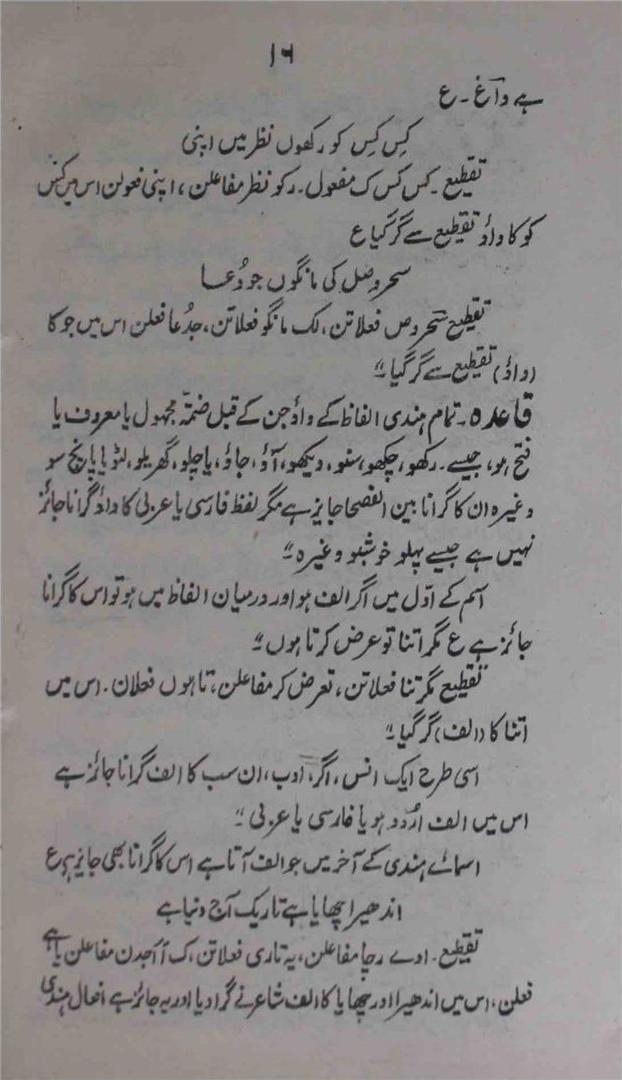 ۱۶
ہے داغ۔ ع
کس کِس کو رکھوں نظر میں اپنی
تقطیع۔ کس کس ک مفعول۔ رکو نظر مفاعلن، اپنی فعولن اس میں
کو کا واؤ تقطیع سے گر گیا ع
سحر وصل کی مانگوں جو دُعا
تقطیع سحروص فعلاتن، لک مانگو فعلاتن، جدُعا فعلن اس میں جو کا
(واؤ) تقطیع سے گر گیا۔"
قاعدہ۔ تمام ہندی الفاظ کے واؤ جن کے قبل ضمّہ مجہول یا معروف یا
فتح ہو، جیسے۔ رکھو، چکھو، سنو، دیکھو، آؤ، جاؤ، یا چلو، گھریلو، لڈو یا پانچ سو
وغیرہ ان کا گرانا بین الفصحا جایز ہے مگر لفظ فارسی یا عربی کا واؤ گرانا جائز
نہیں ہے جیسے پہلو خوشبو وغیرہ۔"
اسم کے اوّل میں اگر الف ہو اور درمیان الفاظ میں ہو تو اس کا گرانا
جائز ہے ع مگر اتنا تو عرض کرتا ہوں۔"
تقطیع مگرتنا فعلاتن، تعرض کر مفاعلن، تا ہوں فعلان۔ اس میں
اتنا کا (الف) گر گیا۔"
اسی طرح ایک انس، اگر، ادب، ان سب کا الف گرانا جائز ہے
اس میں الف اُردو ہو یا فارسی یا عربی۔"
اسمائے ہندی کے آخر میں جو الف آتا ہے اس کا گرانا بھی جایز ہے ع
اندھیرا چھایا ہے تاریک آج دنیا ہے
تقطیع۔ ادے رچا مفاعلن، یہ تاری فعلاتن، ک آاجدن مفاعلن یا ہے
فعلن، اس میں اندھیرا اور چھایا کا الف شاعر نے گرا دیا اور یہ جائز ہے افعال ہندی